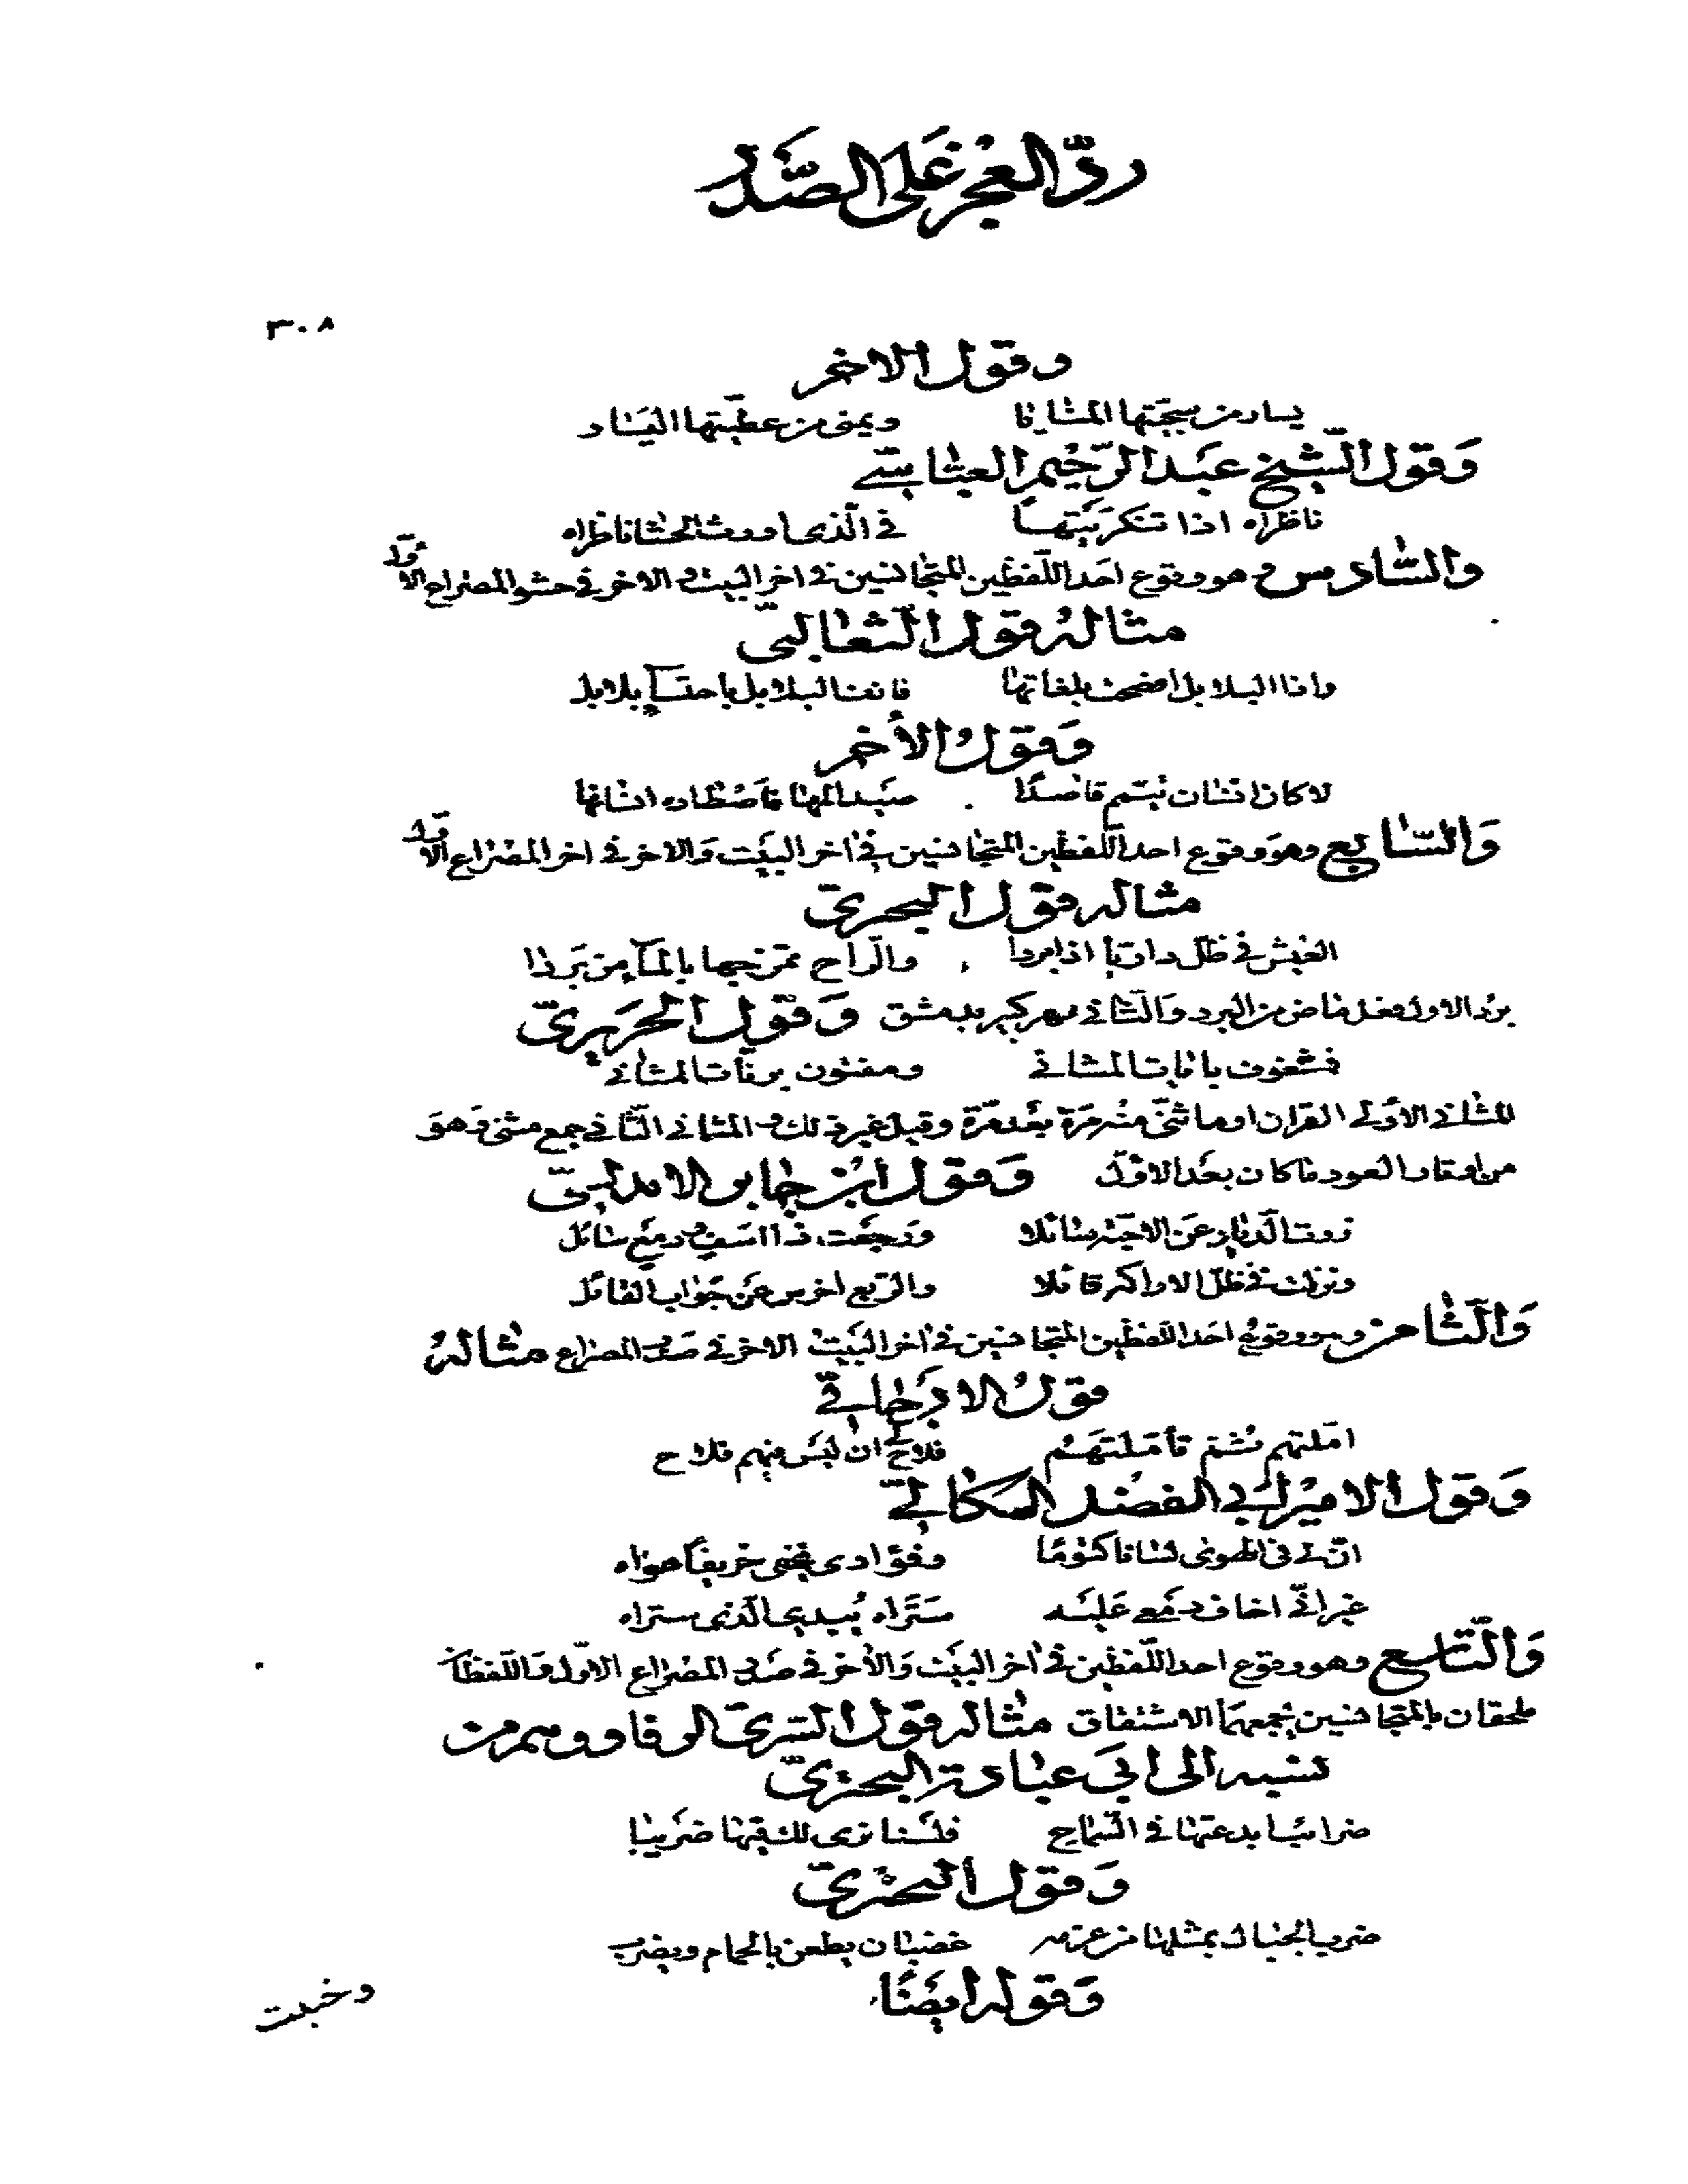 ردّ العجز على الصَّدر
٣٠٨
وقول الاخر
يسار من سجيّتها المنايا ويمنى من عطيّتها اليسار
وَقول الشّيخ عَبد الرّحيم العبّاسيّ
ناظراه اذا تنكر تيّها في الّذي اورث الحشا ناظراه
والسّادس وهو وقوع احَد اللّفظين المتجانسين في اخر البيت و الاخر في حشو المصراع الاوّل
مثاله قول الثّعالبيّ
واذا البلابل افصحت بلغاتها فانف البلابل باحتساء بلابل
وَقول الأخر
لا كان انسان تيمّم قاصدًا صَيد المها فاصْطاده انسانها
وَالسّابع وهوَ وقوع احد اللّفظين المتجانسين في اخر البيَت وَالاخر في اخر المصْراع الاوّل
مثاله قول البحتريّ
العيش في ظلّ داريّا اذا بردا والرّاح نمزجها بالمآء من بَردا
برد الاول فعل ماض من البرد وَالثّاني نهر كبير بدمشق وَقول الحَريريّ
فمشغوف باٰيات المثاني ومفتون برنّات المثاني
المثاني الأولى القران او ما ثنّي منْه مَرّة بعْد مَرّة وقيل غير ذلك و المثاني الثّاني جمع مثنى وَهوَ
من اوتار العود ما كان بعْد الاوّل وَقول ابن جابر الاندلسيّ
زرت الدّيار عَن الاحبّة سائلا وَرَجعْت ذا اسَفٍ و دمعٍ سٰائل
ونزلت في ظلّ الاراكة قائلا والرّبع اخرس عَن جَواب القائل
وَالثّامن وهو وقوع احَد اللّفظين المتجانسين في اخر البَيت و الاخر في صَدر المصراع مثاله
قول الارّجانيّ
امّلتهم ثمّ تأمّلتهَم فلاحَ لي ان ليْسَ فيهم فلاح
وَقول الامير ابي الفضل الميكاليّ
انّ لي في الهوى لسانا كتومًا وفؤادي يخفي حريق جواه
غير انّي اخاف دمعي عَليْه سَتَراه يُبدي الّذي ستراه
وَالتّاسع وهو وقوع احد اللّفظين في اخر البيَت وَالأخر في صَدر المصْراع الاوّل وَ اللّفظان
ملحقان بالمتجانسين يجمعهمَا الاشتقاق مثاله قول السّريّ الرفاء ووهم من
نسبه الى ابي عبادة البحتريّ
ضرائب ابدعتها في السّماح فلسْنا نرى لك فيها ضَريبا
وَقول البحتريّ
ضرب الجبال بمثلها من عزمه غضبان يطعن بالحمام ويضرب
وَقوله ايضًا
وخيبت